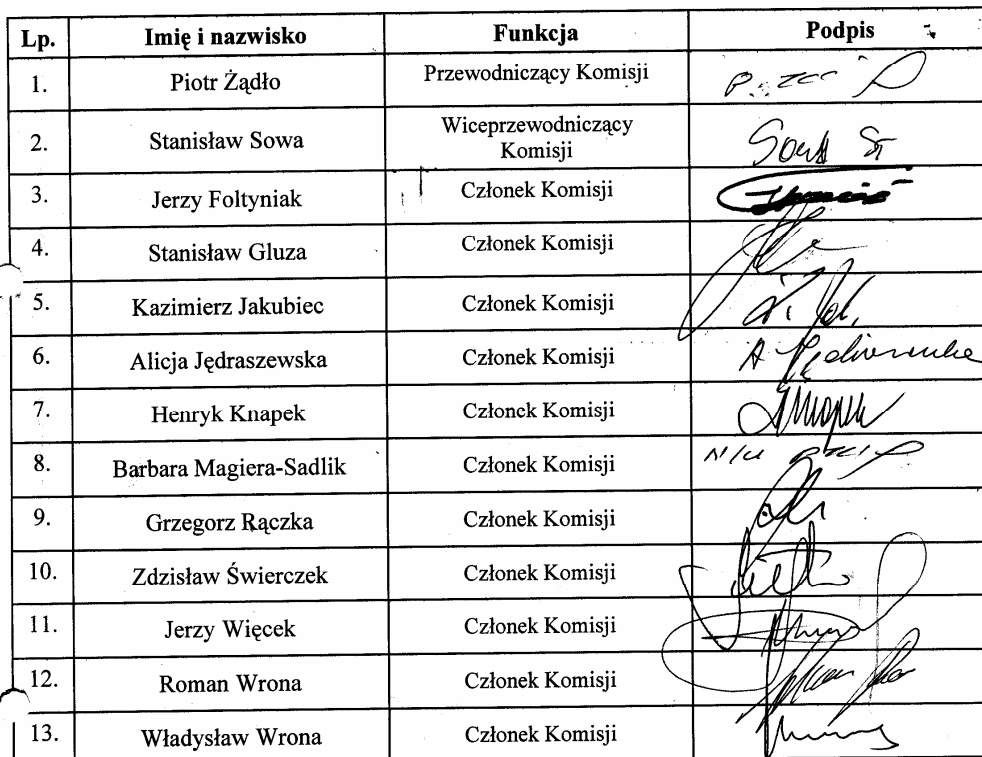 Lp. Imię i nazwisko Funkcja Podpis
1. Piotr Żądło Przewodniczący Komisji
2. Stanisław Sowa Wiceprzewodniczący
Komisji Sowa St
3. Jerzy Foltyniak Członek Komisji
4. Stanisław Gluza Członek Komisji
5. Kazimierz Jakubiec Członek Komisji
6. Alicja Jędraszewska Członek Komisji
7. Henryk Knapek Członek Komisji
8. Barbara Magiera-Sadlik Członek Komisji
9. Grzegorz Rączka Członek Komisji
10. Zdzisław Świerczek Członek Komisji
11. Jerzy Więcek Członek Komisji
12. Roman Wrona Członek Komisji
13. Władysław Wrona Członek Komisji